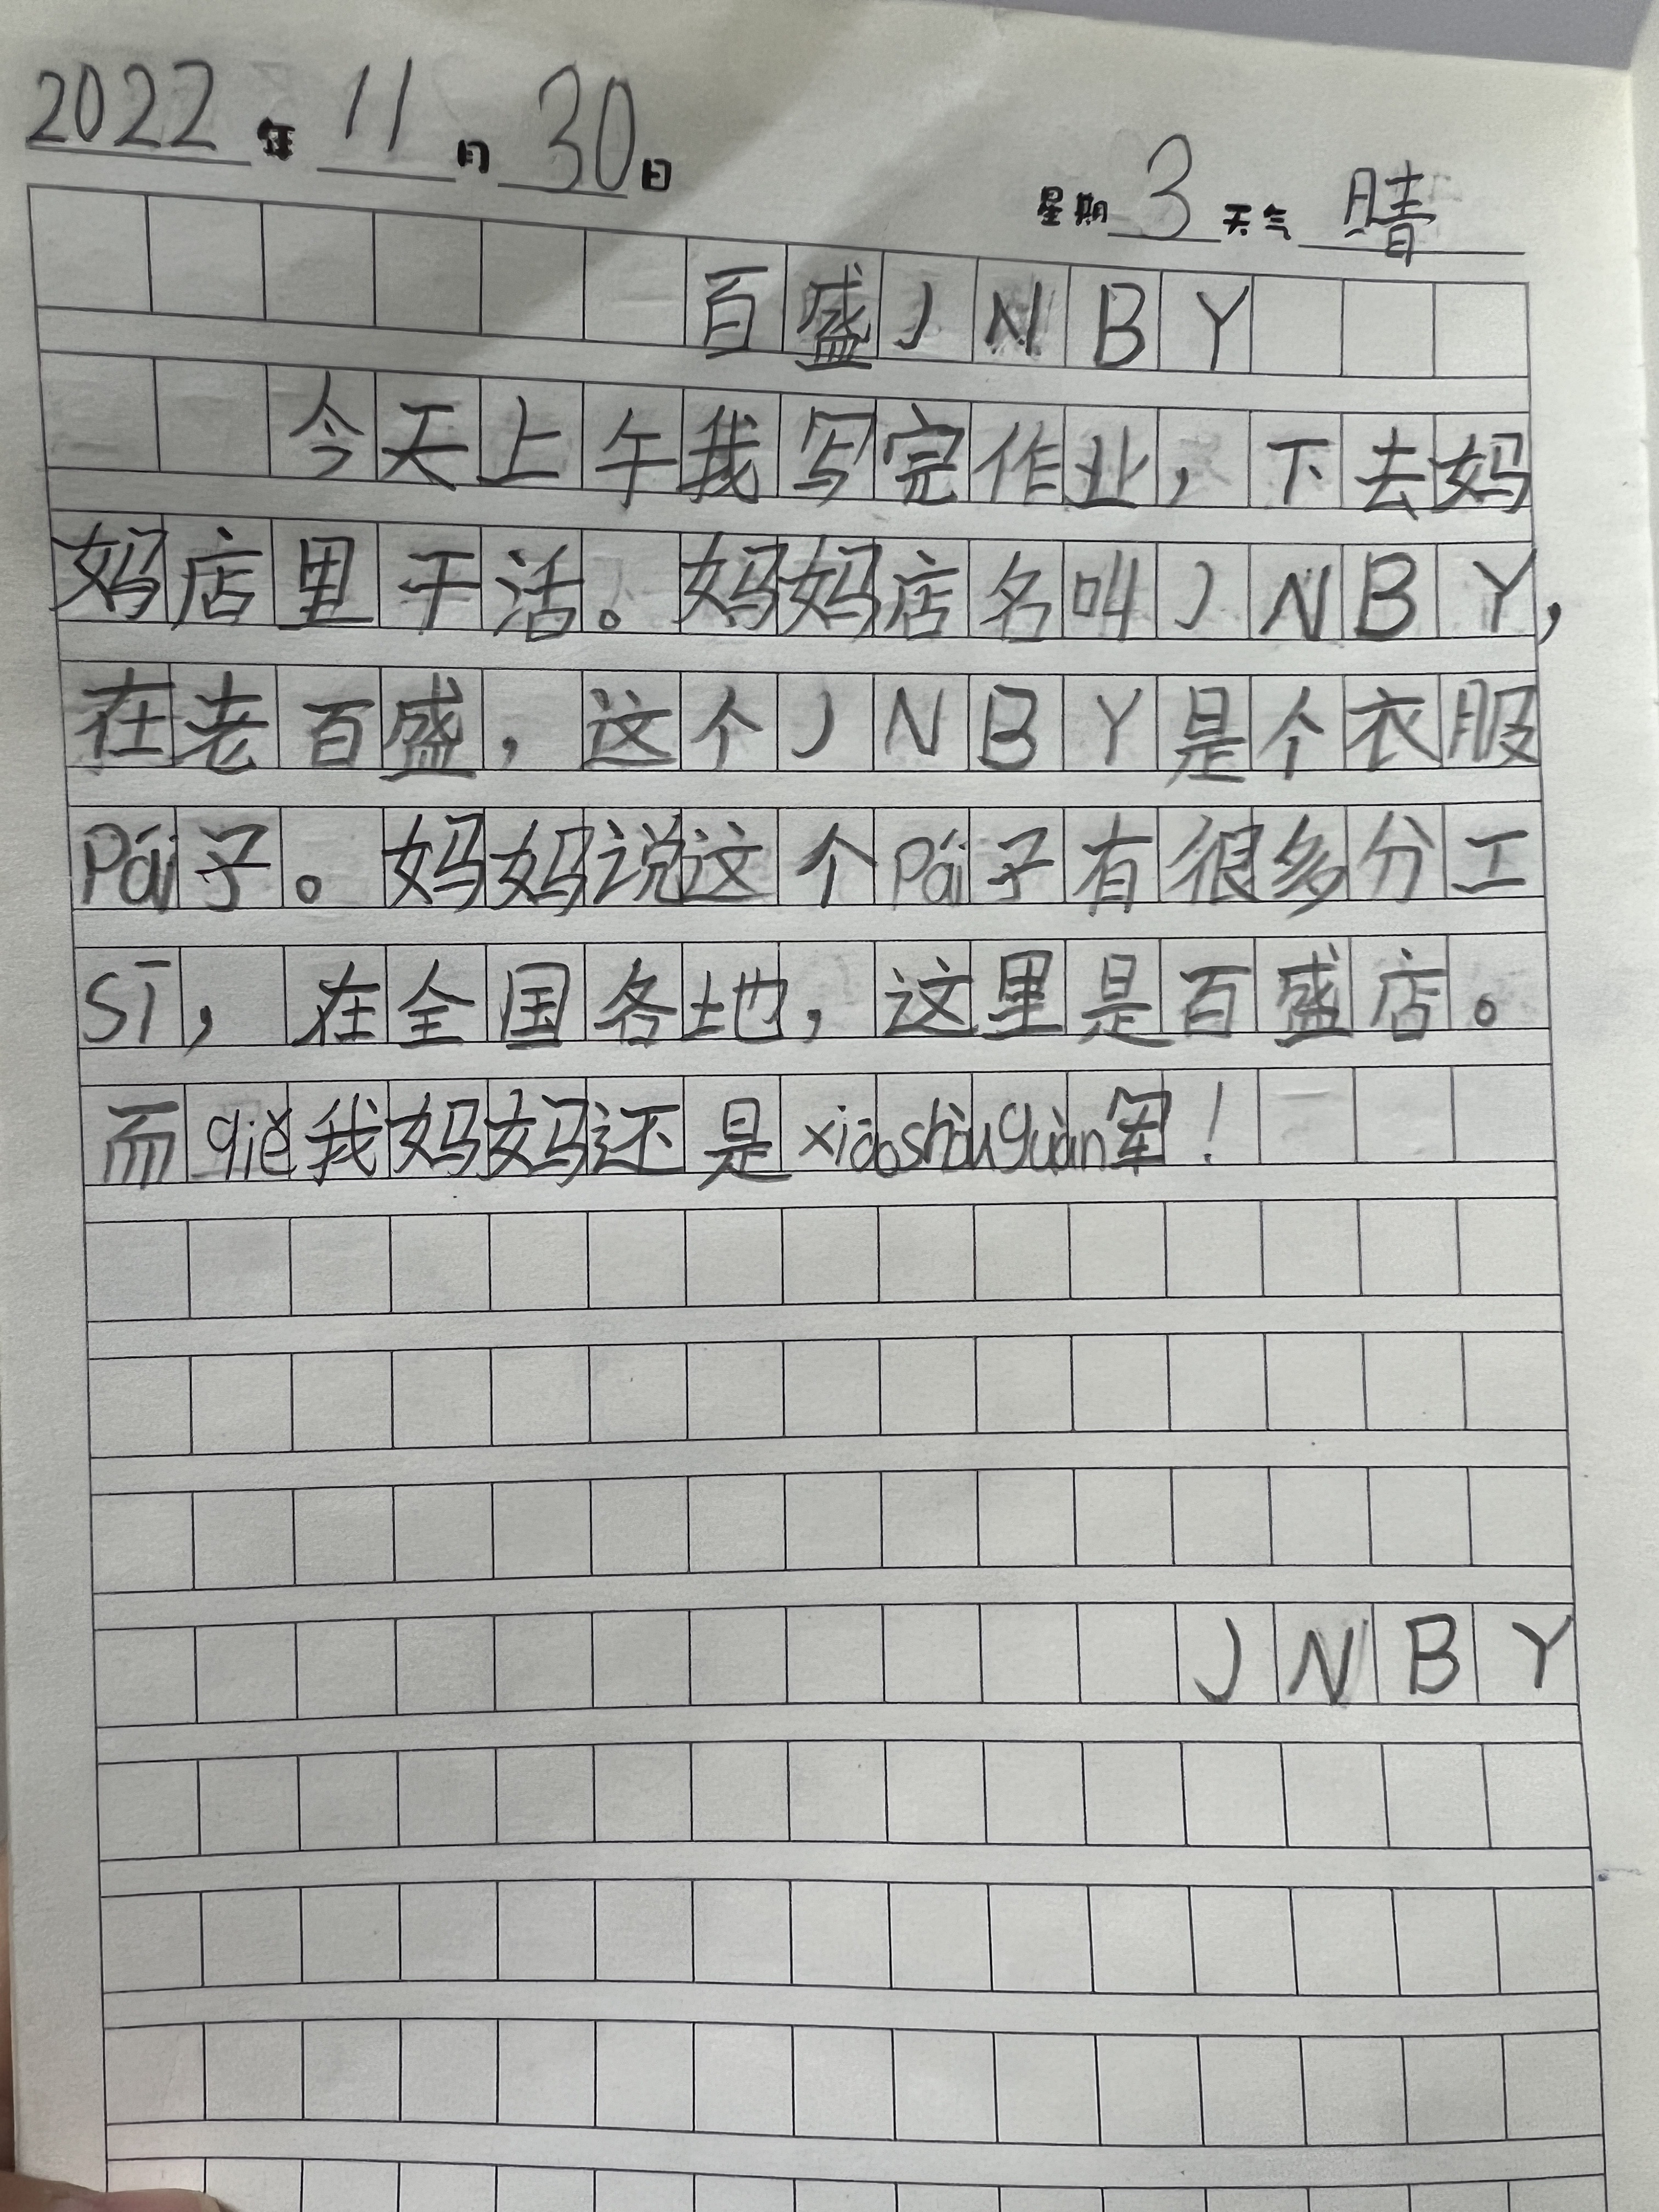 2022年11月30日 星期3天气晴
百盛JNBY
今天上午我写完作业，下去妈
妈店里干活。妈妈店名叫JNBY，
在老百盛，这个JNBY是个衣服
Pái子。妈妈说这个Pái子有很多分工
sī，在全国各地，这里是百盛店。
而qiě我妈妈还是xiāoshòuguàn军！
JNBY